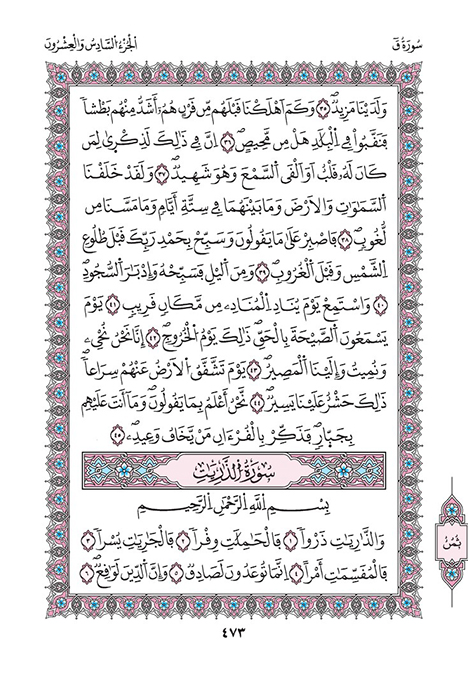 سُورَةُ قٓ
اَلْجُزْءُ السَّادِسُ وَالْعِشْرُونَ
وَلَدَيْنَا مَزِيدٞۖ ٣٥ وَكَمَ اَهْلَكْنَا قَبْلَهُم مِّن قَرْنٍ هُمُۥٓ أَشَدُّ مِنْهُم بَطْشاٗ
فَنَقَّبُواْ فِے اِلْبِلَٰدِ هَلْ مِن مَّحِيصٍۖ ٣٦ اِنَّ فِے ذَٰلِكَ لَذِكْر۪ىٰ لِمَن
كَانَ لَهُۥ قَلْبٌ اَوَ اَلْقَى اَلسَّمْعَ وَهُوَ شَهِيدٞۖ ٣٧ وَلَقَدْ خَلَقْنَا
اَلسَّمَٰوَٰتِ وَالَارْضَ وَمَا بَيْنَهُمَا فِے سِتَّةِ أَيَّامٖ وَمَا مَسَّنَا مِن
لُّغُوبٖۖ ٣٨ فَاصْبِرْ عَلَىٰ مَا يَقُولُونَ وَسَبِّحْ بِحَمْدِ رَبِّكَ قَبْلَ طُلُوعِ
اِلشَّمْسِ وَقَبْلَ اَلْغُرُوبِۖ ٣٩ وَمِنَ اَليْلِ فَسَبِّحْهُ وَإِدْبَٰرَ اَلسُّجُودِۖ
٤٠ وَاسْتَمِعْ يَوْمَ يُنَادِ اِلْمُنَادِۦ مِن مَّكَانٖ قَرِيبٖ ٤١ يَوْمَ
يَسْمَعُونَ اَلصَّيْحَةَ بِالْحَقِّۖ ذَٰلِكَ يَوْمُ اُلْخُرُوجِۖ ٤٢ إِنَّا نَحْنُ نُحْيِۦ
وَنُمِيتُ وَإِلَيْنَا اَلْمَصِيرُۖ ٤٣ يَوْمَ تَشَّقَّقُ اُلَارْضُ عَنْهُمْ سِرَاعاٗۖ
ذَٰلِكَ حَشْرٌ عَلَيْنَا يَسِيرٞۖ ٤٤ نَّحْنُ أَعْلَمُ بِمَا يَقُولُونَۖ وَمَآ أَنتَ عَلَيْهِم
بِجَبَّارٖۖ فَذَكِّرْ بِالْقُرْءَانِ مَنْ يَّخَافُ وَعِيدِۦۖ ٤٥
سُورَةُ الذَّارِيَٰتِ
بِسْمِ اللَّهِ الرَّحْمَٰنِ الرَّحِيمِ
وَالذَّٰرِيَٰتِ ذَرْواٗ ١ فَالْحَٰمِلَٰتِ وِقْراٗ ٢ فَالْجَٰرِيَٰتِ يُسْراٗ ٣
فَالْمُقَسِّمَٰتِ أَمْراً ٤ اِنَّمَا تُوعَدُونَ لَصَادِقٞ ٥ وَإِنَّ اَلدِّينَ لَوَٰقِعٞۖ ٦
ثُمُنُ
٤٧٣